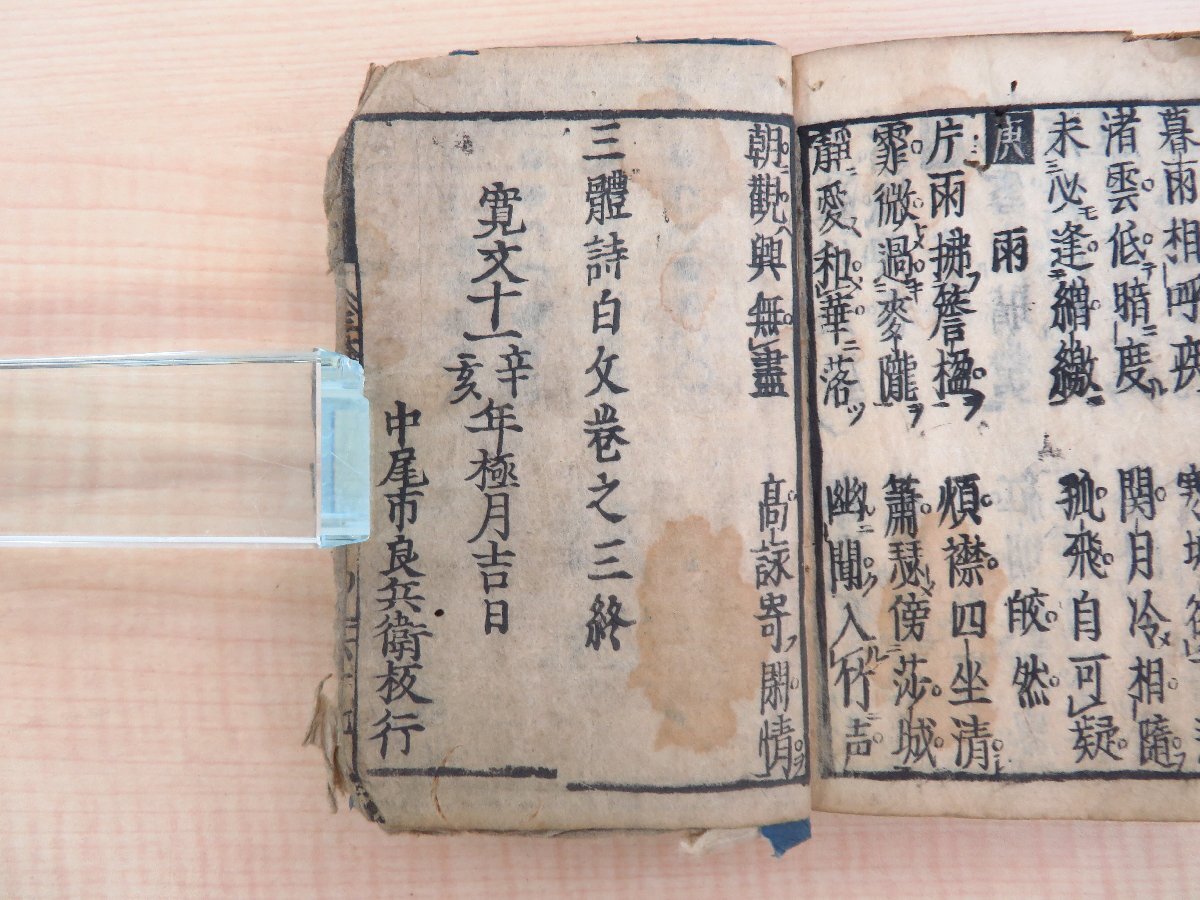 暮雨相呼 寒塘
渚雲低暗度 関月冷相隨
未必逢繒繳 孤飛自可疑
庚 雨 皎然
片雨拂簷楹 煩襟四坐清
霏微過麥隴 蕭瑟傍莎城
靜愛和華落 幽聞入竹声
朝觀興無盡 高詠寄閑情
三體詩白文卷之三終
寛文十一辛亥年極月吉日
中尾市良兵衛板行